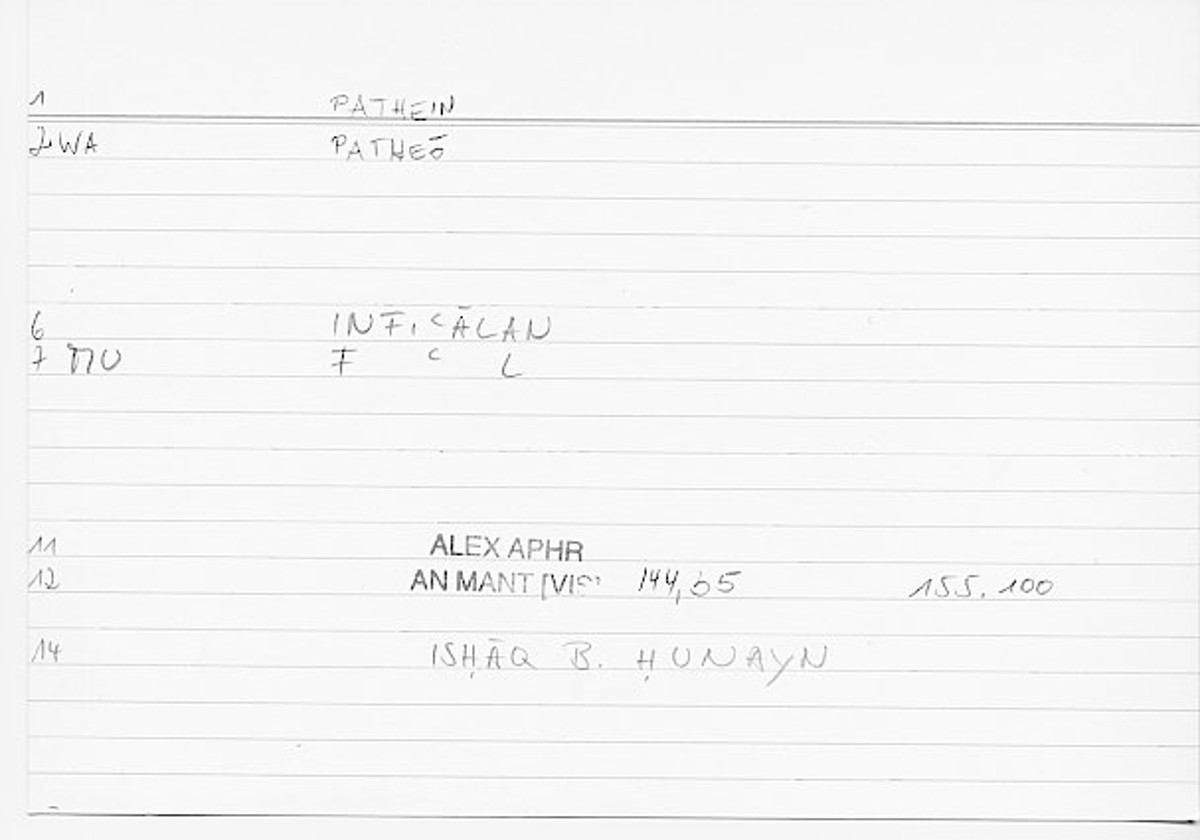 1 PATHEIN
2 WA PATHEŌ
6 INFIʿĀLAN
7 F ʿ L
11 ALEX APHR
12 AN MANT [VIS] 155.100
14 ISḤĀQ B. ḤUNAYN